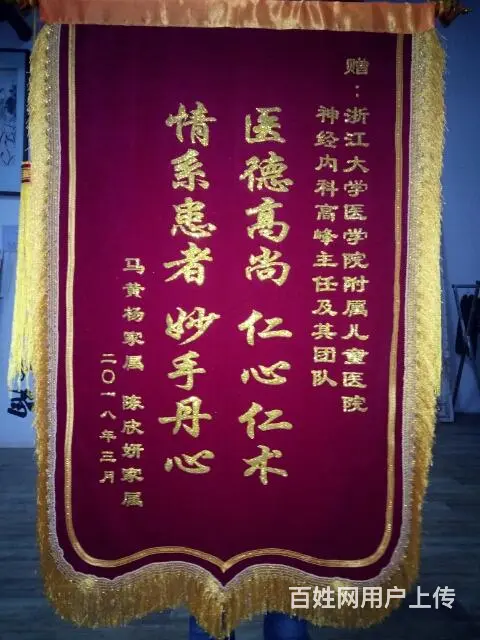 赠：浙江大学医学院附属儿童医院
神经内科高峰主任及其团队
医德高尚 仁心仁术
情系患者 妙手丹心
马黄杨家属 陈欣妍家属
二〇一八年三月
百姓网用户上传